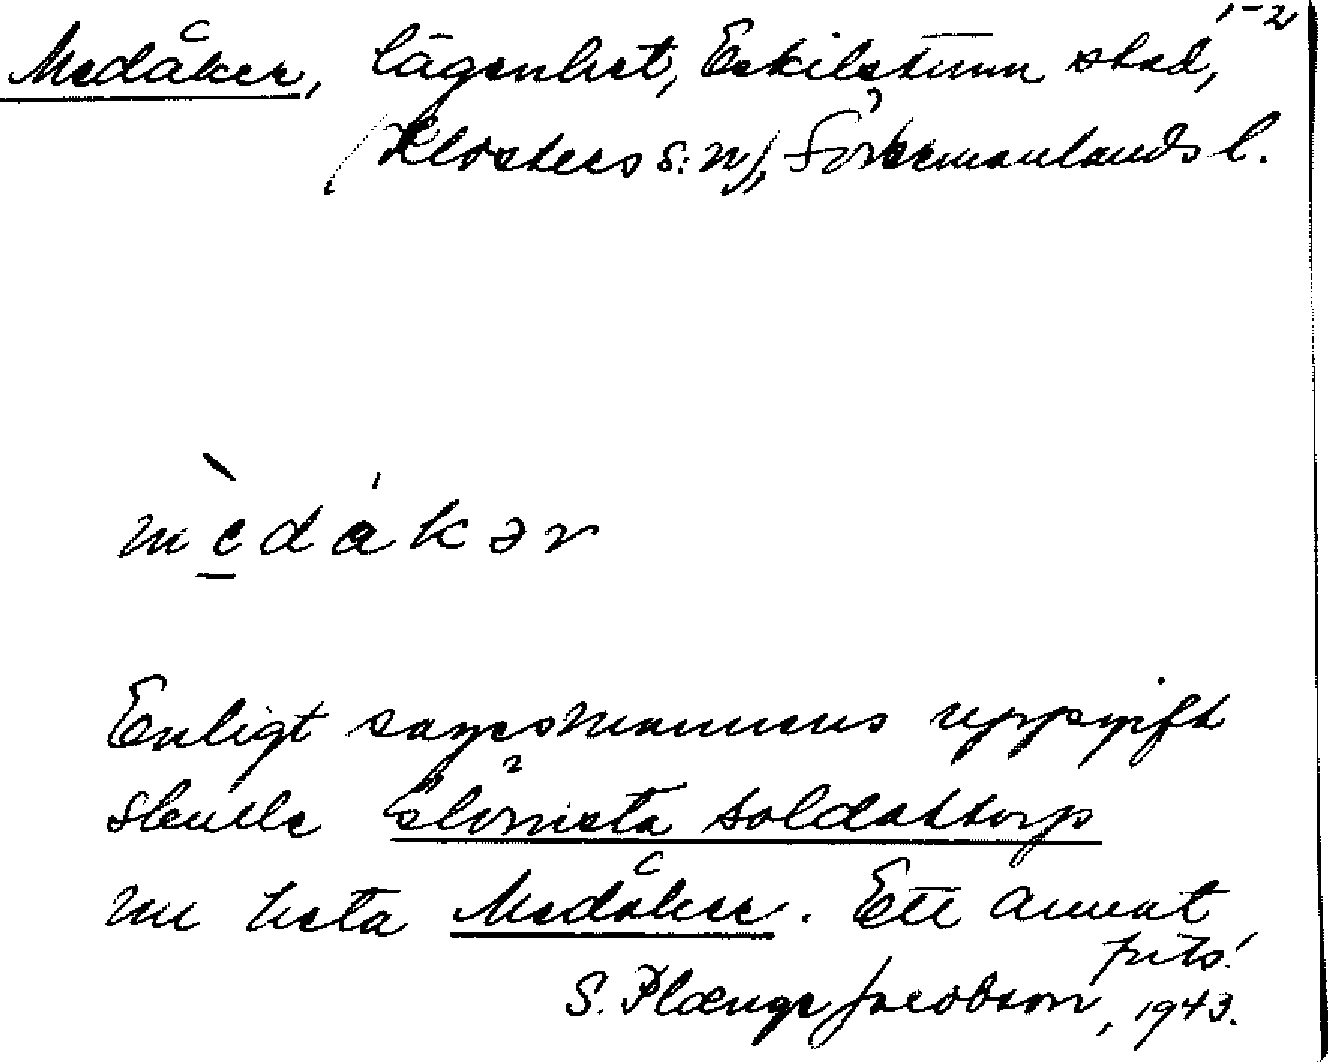 1-2
Medåker, lägenhet, Eskilstuna stad,
(Klosters s:n), Södermanlands l.
mèdåkər
Enligt sagesmannens uppgift
skulle Slörsta soldattorp
nu heta Medåker. Ett annat
forts!
S. Plænge Jacobson, 1943.